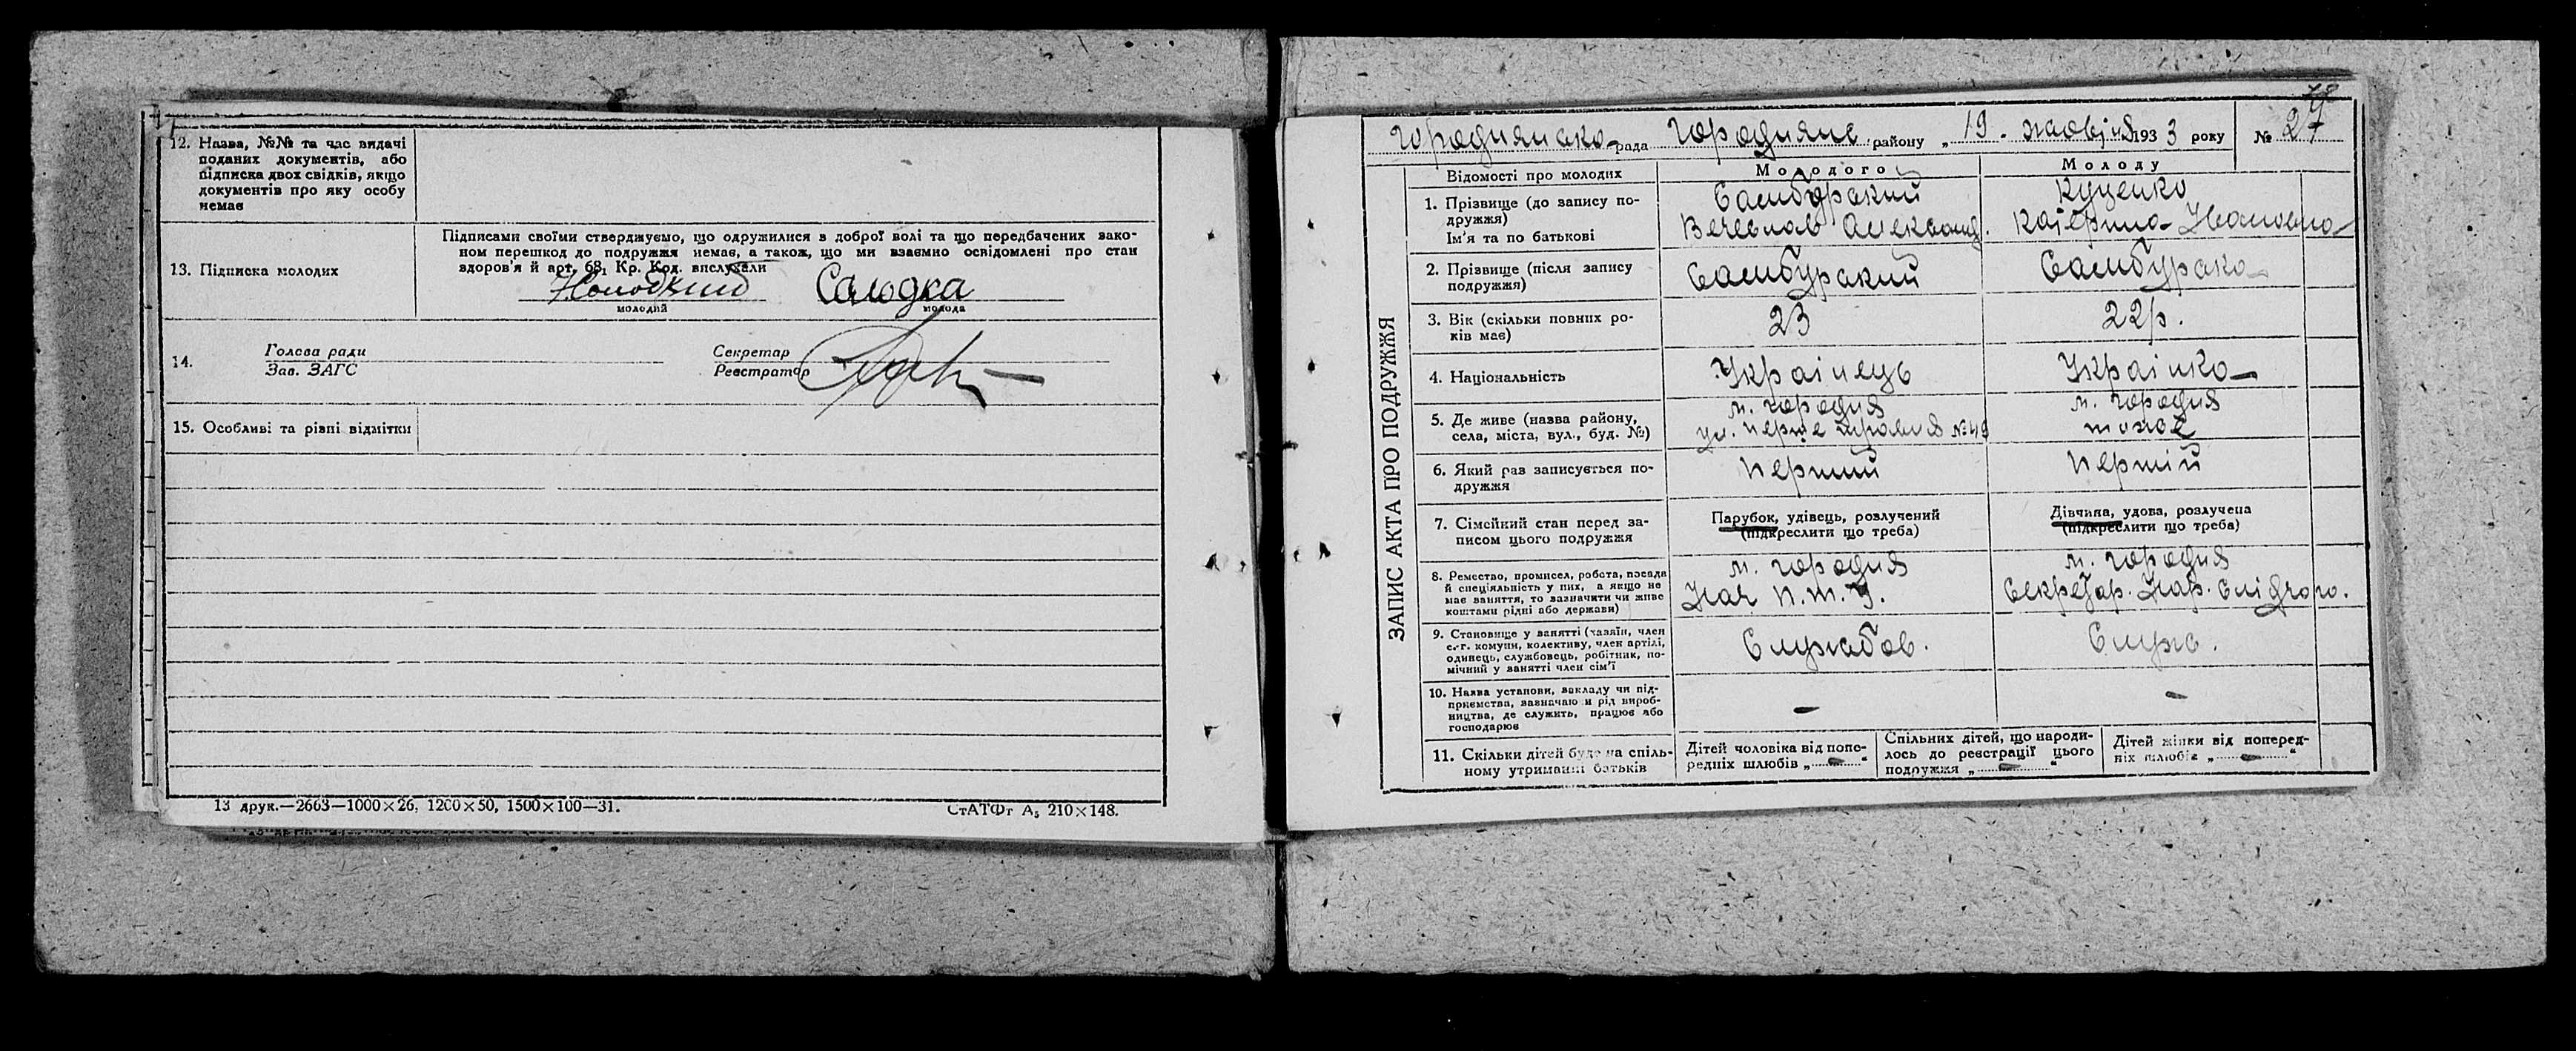 12. Назва, №№ та час видачі
поданих документів, або
підписка двох свідків, якщо
документів про яку особу
немає
13. Підписка молодих
Підписами своїми стверджуємо, що одружилися в доброї волі та що передбачених зако-
ном перешкод до подружжя немає, а також, що ми взаємно освідомлені про стан
здоров'я й арт. 68, Кр. Код. вислухали
Салодка
молодий молода
14. Голова ради
Зав. ЗАГС
Секретар
Реєстратор
15. Особливі та різні відмітки
13 друк.—2663—1000×26, 1200×50, 1500×100—31.
СтАТФт А5 210×148.
Городнянска рада Городняне району „ 19. 1933 року № 27
ЗАПИС АКТА ПРО ПОДРУЖЖЯ
Відомості про молодих Молодого Молоду
1. Прізвище (до запису по-
дружжя)
Ім'я та по батькові
Самбурский
Вечеслав Александ.
Куценко
Катерина Ивановна
2. Прізвище (після запису
подружжя)
Самбурский
Самбурска
3. Вік (скільки повних ро-
ків має)
23
22р.
4. Національність
Українець
Українка
5. Де живе (назва району,
села, міста, вул., буд. №)
м. Городня
ул. Перше травня №49
м. Городня
тоже
6. Який раз записується по-
дружжя
перший
першій
7. Сімейний стан перед за-
писом цього подружжя
Парубок, удівець, розлучений
(підкреслити що треба)
Дівчина, удова, розлучена
(підкреслити що треба)
8. Ремество, промисел, робота, посада
й спеціяльність у них, а якщо не
має заняття, то зазначити чи живе
коштами рідні або держави)
м. Городня
Нач П.Т.У.
м. Городня
Секретар. Нар. Слідчого.
9. Становище у занятті (хазяїн, член
с.-г. комуни, колективу, член артілі,
одинець, службовець, робітник, по-
мічний у занятті член сім'ї
Службов.
Служ.
10. Назва установи, закладу чи під-
приємства, зазначаючи рід вироб-
ництва, де служить, працює або
господарює
–
–
11. Скільки дітей буде на спіль-
ному утриманні батьків
Дітей чоловіка від попе-
редніх шлюбів „ – “
Спільних дітей, що народи-
лось до реєстрації цього
подружжя „ – “
Дітей жінки від поперед-
ніх шлюбів „ – “